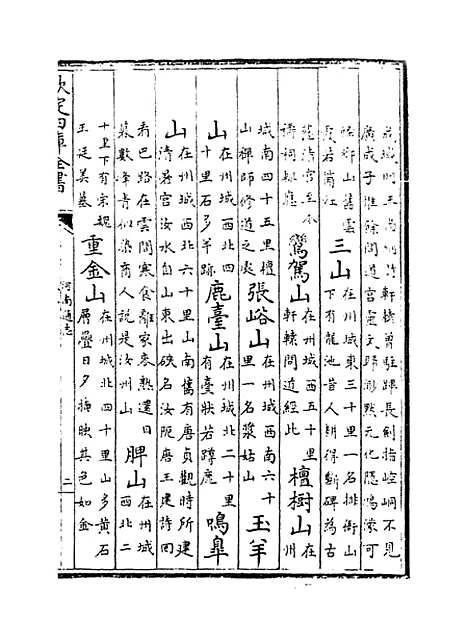 城明王尚絅詩軒轅曾駐蹕長劍指崆峒不見
廣成子惟餘問道宮靈文歸渺默元化隱鴻濛可
鄉山舊雲
三山
在州城東三十里一名排衙山
下有龍池昔人耕得斷碑為古
龍清宮至今
鸞駕山
在州城西五十里
軒轅問道經此
檀樹山
在
州
城南四十五里檀
山禪師修道之處
張峪山
在州城西南六十
里一名漿姑山
玉羊
山
在州城西北四
十里石多羊跡
鹿臺山
在州城北二十里
有臺狀若蹲鹿
鳴臯
山
在州城西北六十里山南舊有唐貞觀時所建
清暑宮汝水自山東出峽名汝阨唐王建詩回
看巴路在雲間寒食離家麥熟還日
暮數峰青似染商人說是汝州山
脾山
在州城
西北二
十里下有宋魏
王廷美墓
重金山
在州城北四十里山多黃石
層疊日夕掩映其色如金
欽定四庫全書
河南通志
二